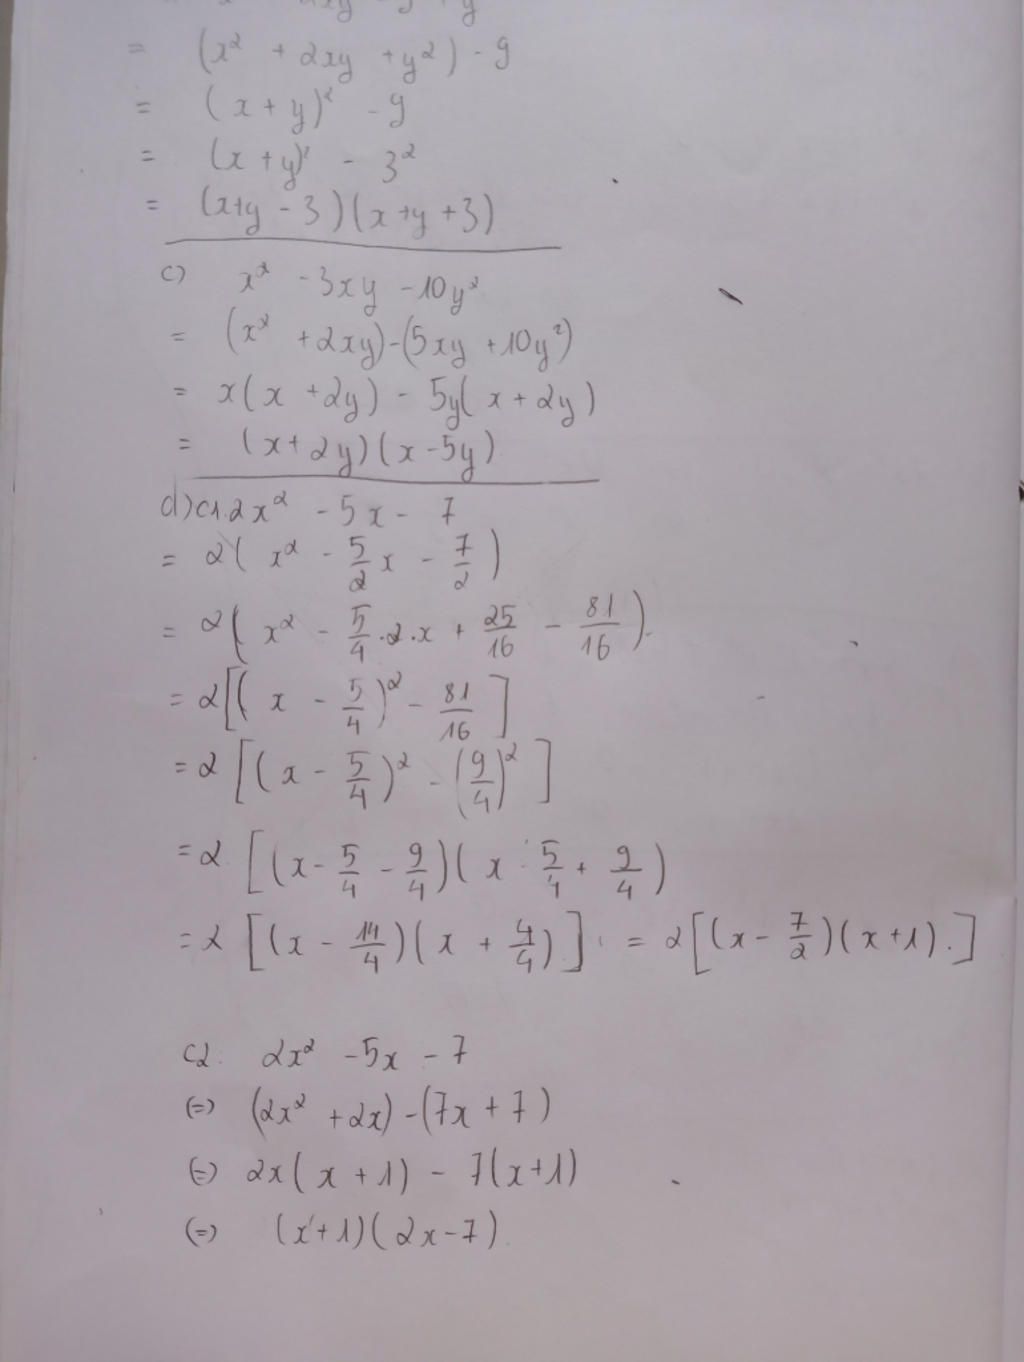 = (x² + 2xy + y²) - 9
= (x + y)² - 9
= (x + y)² - 3²
= (x+y - 3)(x + y + 3)
c) x² - 3xy - 10y²
= (x² + 2xy) - (5xy + 10y²)
= x(x + 2y) - 5y(x + 2y)
= (x + 2y)(x - 5y)
d) c1. 2x² - 5x - 7
= 2(x² - 5/2 x - 7/2)
= 2(x² - 5/4 . 2 . x + 25/16 - 81/16).
= 2[(x - 5/4)² - 81/16]
= 2[(x - 5/4)² - (9/4)²]
= 2[(x - 5/4 - 9/4)(x - 5/4 + 9/4)
= 2[(x - 14/4)(x + 4/4)] = 2[(x - 7/2)(x + 1).]
c2. 2x² - 5x - 7
(=) (2x² + 2x) - (7x + 7)
(=) 2x(x + 1) - 7(x+1)
(=) (x + 1)(2x - 7)